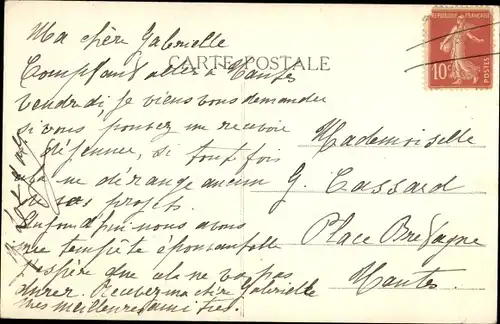 Ma chère Gabrielle
CARTE POSTALE
Comptant aller à Nantes
vendredi, je viens vous demander
si vous pouvez me recevoir
à déjeuner, si tout fois
cela ne dérange aucun
de vos projets.
Aujourd'hui nous avons
une tempête épouvantable
J'espère que cela ne va pas
durer. Recevez ma chère Gabrielle
mes meilleures amitiés.
REPUBLIQUE FRANÇAISE
10c
POSTES
Mademoiselle
G. Cassard
Place Bretagne
Nantes